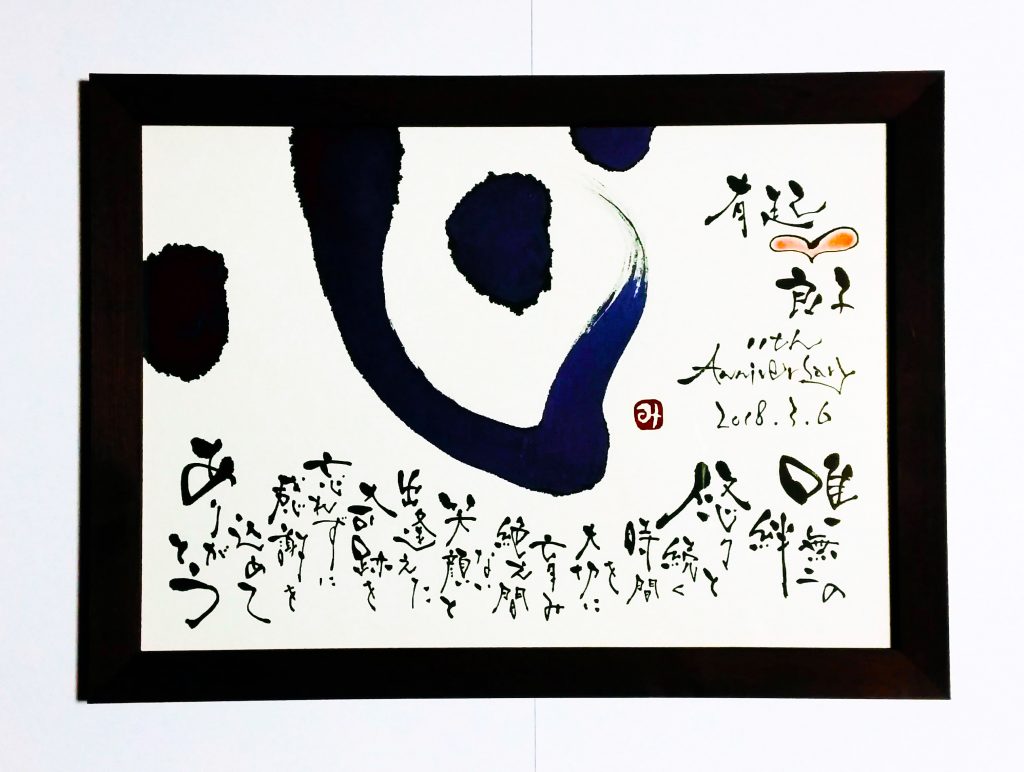 心
有起
良子
11th
Anniversary
2018.3.6
み
唯一無二の
絆
悠々と
続く
時間
を
大切に
育み
絶え間
ない
笑顔と
出逢えた
奇跡を
忘れずに
感謝を
込めて
ありが
とう